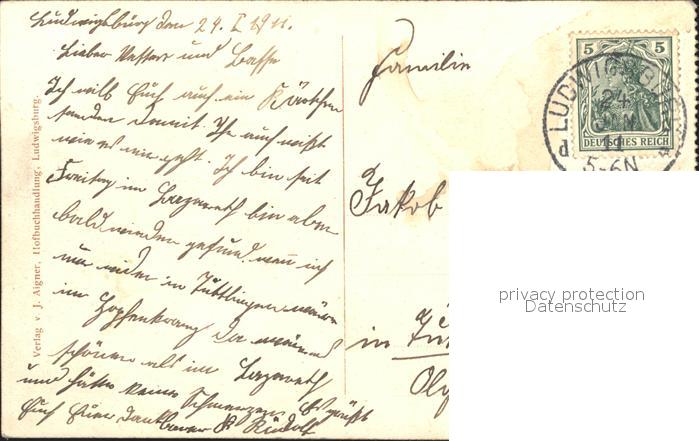 Ludwigsburg den 24. I 1911.
Lieber Vetter und Basse
Ich will Euch auch ein Kärtchen
senden damit Ihr auch wißt
wie es mir geht. Ich bin seit
Freitag im Lazareth bin aber
bald wieder gesund. wenn ich
nur wieder in Tuttlingen wäre
im Hopfenkranz da wäre es
schöner als im Lazareth
und hätte keine Schmerzen. Es grüßt
Euch Euer dankbarer Rudolf
Familie
Jakob
in
Verlag v. J. Aigner, Hofbuchhandlung, Ludwigsburg.
5 5
DEUTSCHES REICH
LUDWIGSBURG
24
11
5-6N
privacy protection
Datenschutz